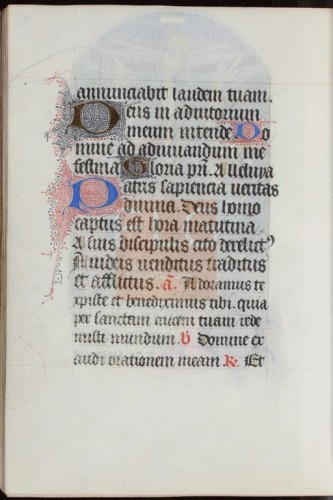 annunciabit laudem tuam.
Deus in adiutorium
meum intende Do
mine ad adiuuandum me
festina Gloria pri. Alleluya
Patris sapiencia ueritas
diuina. Deus homo
captus est hora matutina.
A suis discipulis cito derelictus
A iudeis uenditus traditus
et afflictus. a. Adoramus te
xpiste et benedicimus tibi. quia
per sanctam crucem tuam rede
misti mundum. v Domine ex
audi orationem meam. R. Et